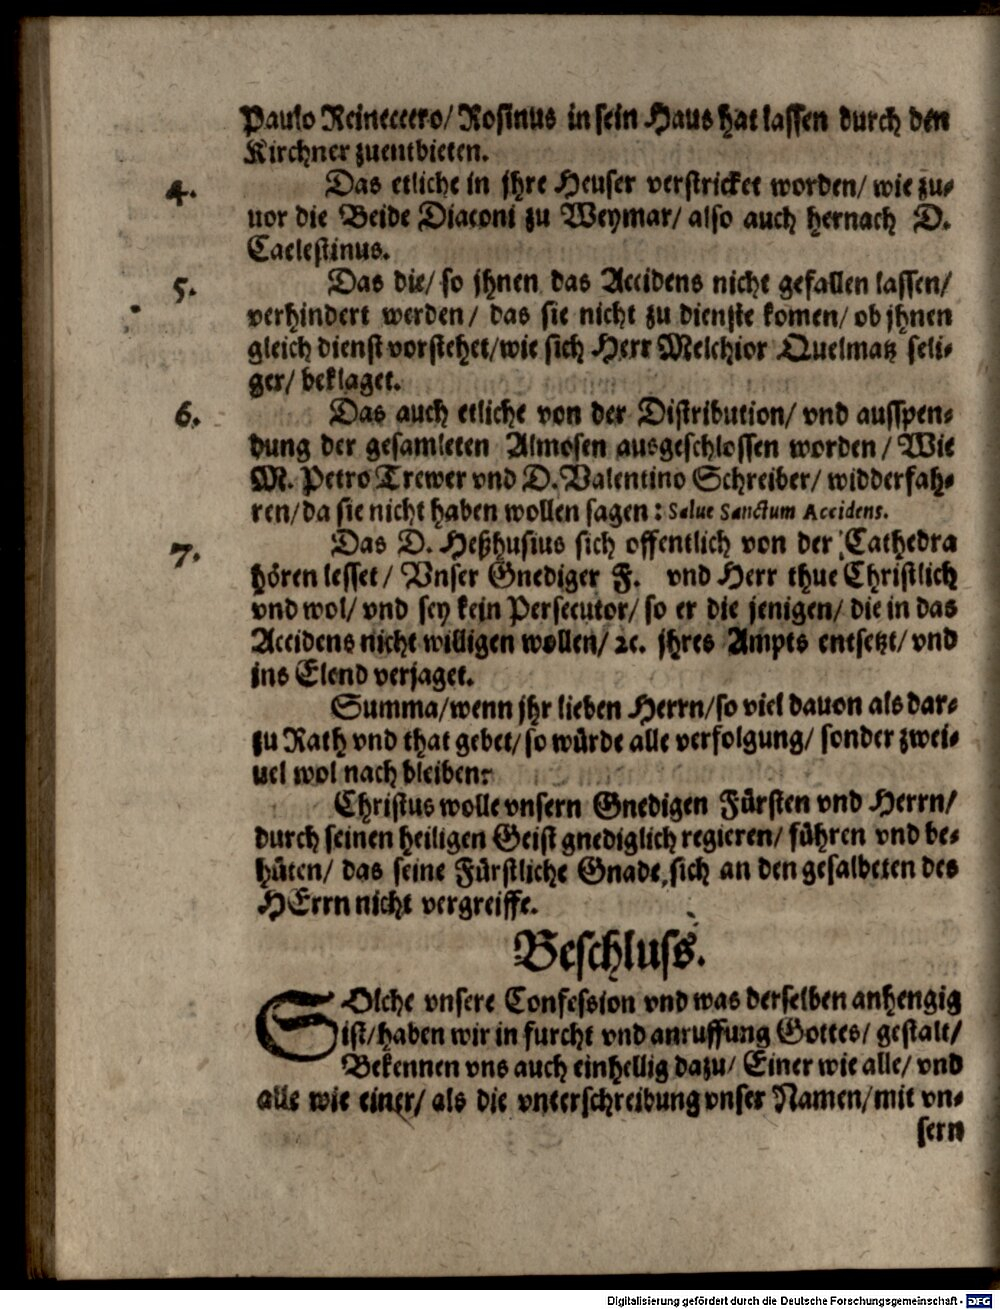 Paulo Reineccero/ Rosinus in sein Haus hat lassen durch den
Kirchner zuentbieten.
4. Das etliche in jhre Heuser verstricket worden/ wie zu-
uor die Beide Diaconi zu Weymar/ also auch hernach D.
Caelestinus.
5. Das die/ so jhnen das Accidens nicht gefallen lassen/
verhindert werden/ das sie nicht zu dienste komen/ ob jhnen
gleich dienst vorstehet/wie sich Herr Melchior Quelmatz seli-
ger/ beklaget.
6. Das auch etliche von der Distribution/ vnd ausspen-
dung der gesamleten Almosen ausgeschlossen worden/ Wie
M. Petro Trewer vnd D. Valentino Schreiber/ widderfah-
ren/ da sie nicht haben wollen sagen: Salue Sanctum Accidens.
7. Das D. Heßhusius sich offentlich von der Cathedra
hören lesset/ Vnser Gnediger F. vnd Herr thue Christlich
vnd wol/ vnd sey kein Persecutor/ so er die jenigen/ die in das
Accidens nicht willigen wollen/ ꝛc. jhres Ampts entsetzt/ vnd
ins Elend verjaget.
Summa/wenn jhr lieben Herrn/so viel dauon als dar-
zu Rath vnd that gebet/ so würde alle verfolgung/ sonder zwei-
uel wol nach bleiben.
Christus wolle vnsern Gnedigen Fürsten vnd Herrn/
durch seinen heiligen Geist gnediglich regieren/ führen vnd be-
hüten/ das seine Fürstliche Gnade, sich an den gesalbeten des
HErrn nicht vergreiffe.
Beschluss.
SOlche vnsere Confession vnd was derselben anhengig
ist/haben wir in furcht vnd anruffung Gottes/ gestalt/
Bekennen vns auch einhellig dazu/ Einer wie alle/ vnd
alle wie einer/ als die vnterschreibung vnser Namen/mit vn-
sern
Digitalisierung gefördert durch die Deutsche Forschungsgemeinschaft - DFG